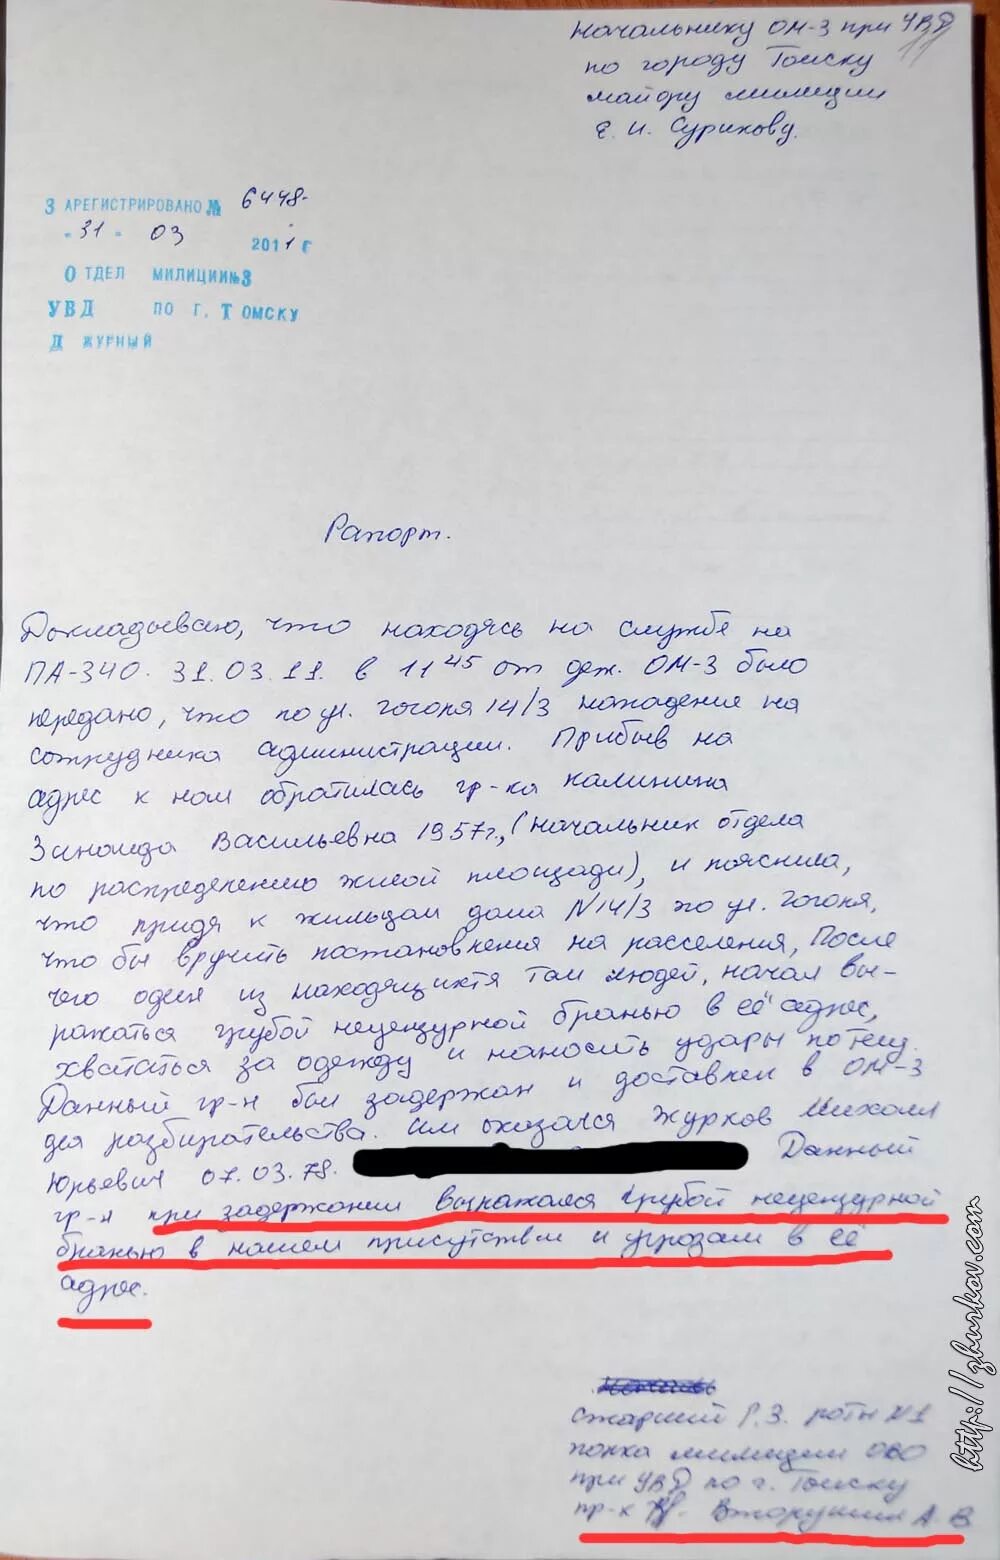 Начальнику ОМ-3 при УВД
по городу Томску
майору милиции
Е. И. Сурикову.
11
ЗАРЕГИСТРИРОВАНО № 6448-
"31" 03 2011 г
ОТДЕЛ МИЛИЦИИ №3
УВД ПО Г. ТОМСКУ
Д ЖУРНЫЙ
Рапорт.
Докладываю, что находясь на службе на
ПА-340. 31.03.11. в 11 45 от деж. ОМ-3 было
передано, что по ул. Гоголя 14/3 нападение на
сотрудника администрации. Прибыв на
адрес к нам обратилась гр-ка Калинина
Зинаида Васильевна 1957г., (начальник отдела
по распределению жилой площади), и пояснила,
что придя к жильцам дома N14/3 по ул. Гоголя,
что бы вручить постановления на расселения, После
чего один из находящихся там людей, начал вы-
ражаться грубой нецензурной бранью в её адрес,
хвататься за одежду и наносить удары по телу.
Данный гр-н был задержан и доставлен в ОМ-3
для разбирательства. Им оказался Журков Михаил
Юрьевич 07.03.78. Данный
гр-н при задержании выражался грубой нецензурной
бранью в нашем присутствии и угрозам в её
адрес.
старший Г.З. роты N1
полка милиции ОВО
при УВД по г. Томску
пр-к Вторушин А. В.
http://zhurkov.com